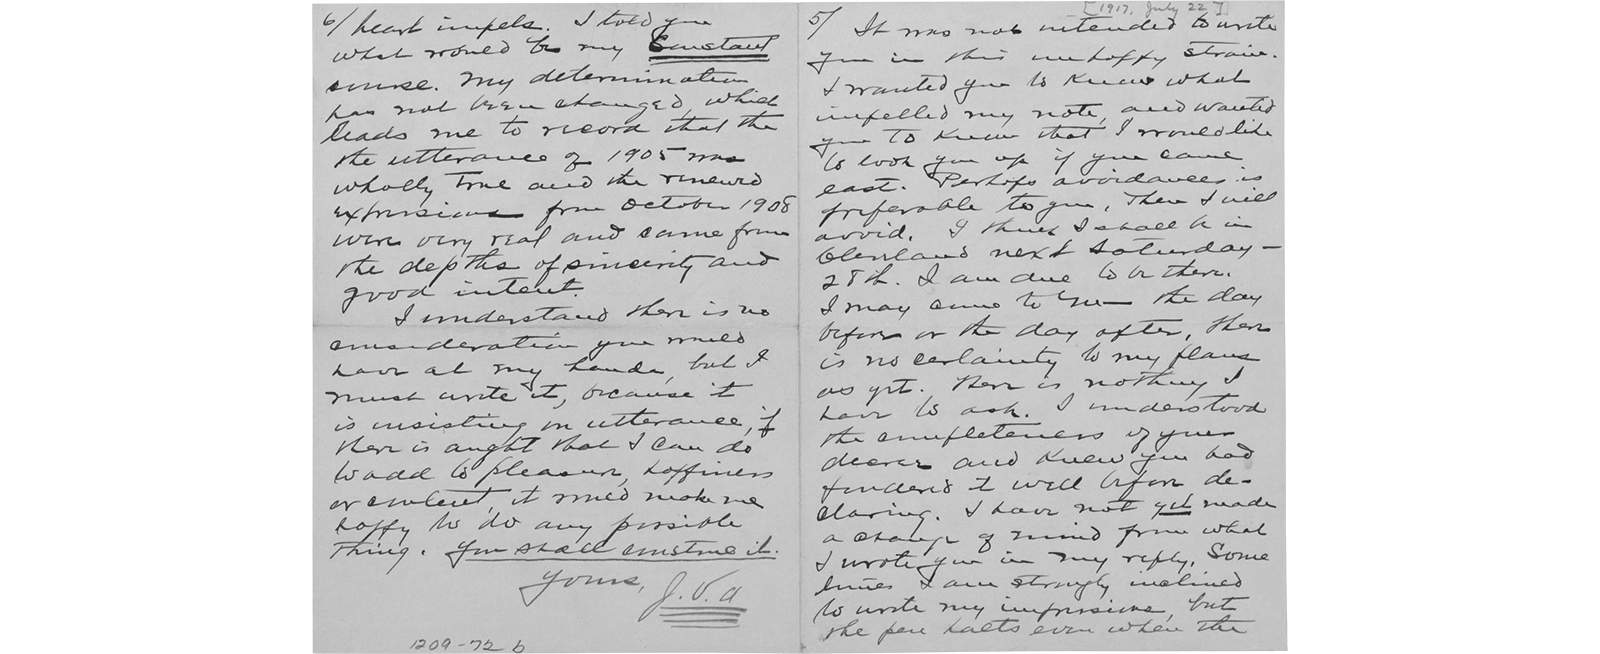 [1917, July 22]
5/ It was not intended to write
you in this unhappy strain.
I wanted you to know what
impelled my note, and wanted
you to know that I would like
to look you up if you came
east. Perhaps avoidances is
preferable to you, Then I will
avoid. I think I shall be in
Cleveland next Saturday –
28th. I am due to be there.
I may come to you the day
before or the day after, there
is no certainty to my plans
as yet. There is nothing I
have to ask. I understood
the completeness of your
decree and knew you had
pondered it well before de-
claring. I have not yet made
a change of mind from what
I wrote you in my reply. Some
times I am strongly inclined
to write my impressions, but
the pen halts even when the
6/ heart impels. I told you
what would be my Constant
course. My determination
has not been changed, which
leads me to record that the
the utterance of 1905 was
wholly true and the renewed
expressions from October 1908
were very real and came from
the depths of sincerity and
good intent.
I understand there is no
consideration you would
have at my hands, but I
must write it, because it
is insisting on utterance, if
there is aught that I can do
to add to pleasure, happiness
or content, it would make me
happy to do any possible
thing. You shall construe it.
Yours,
J. V. A
1209-72 b